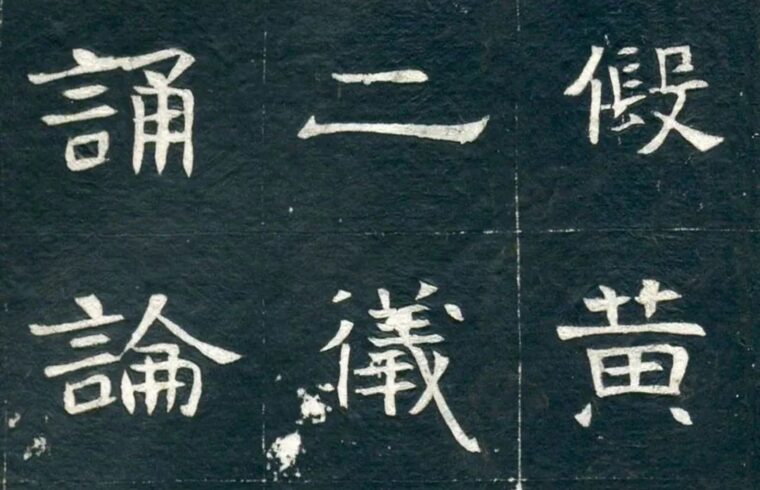 假黄
二儀
誦論